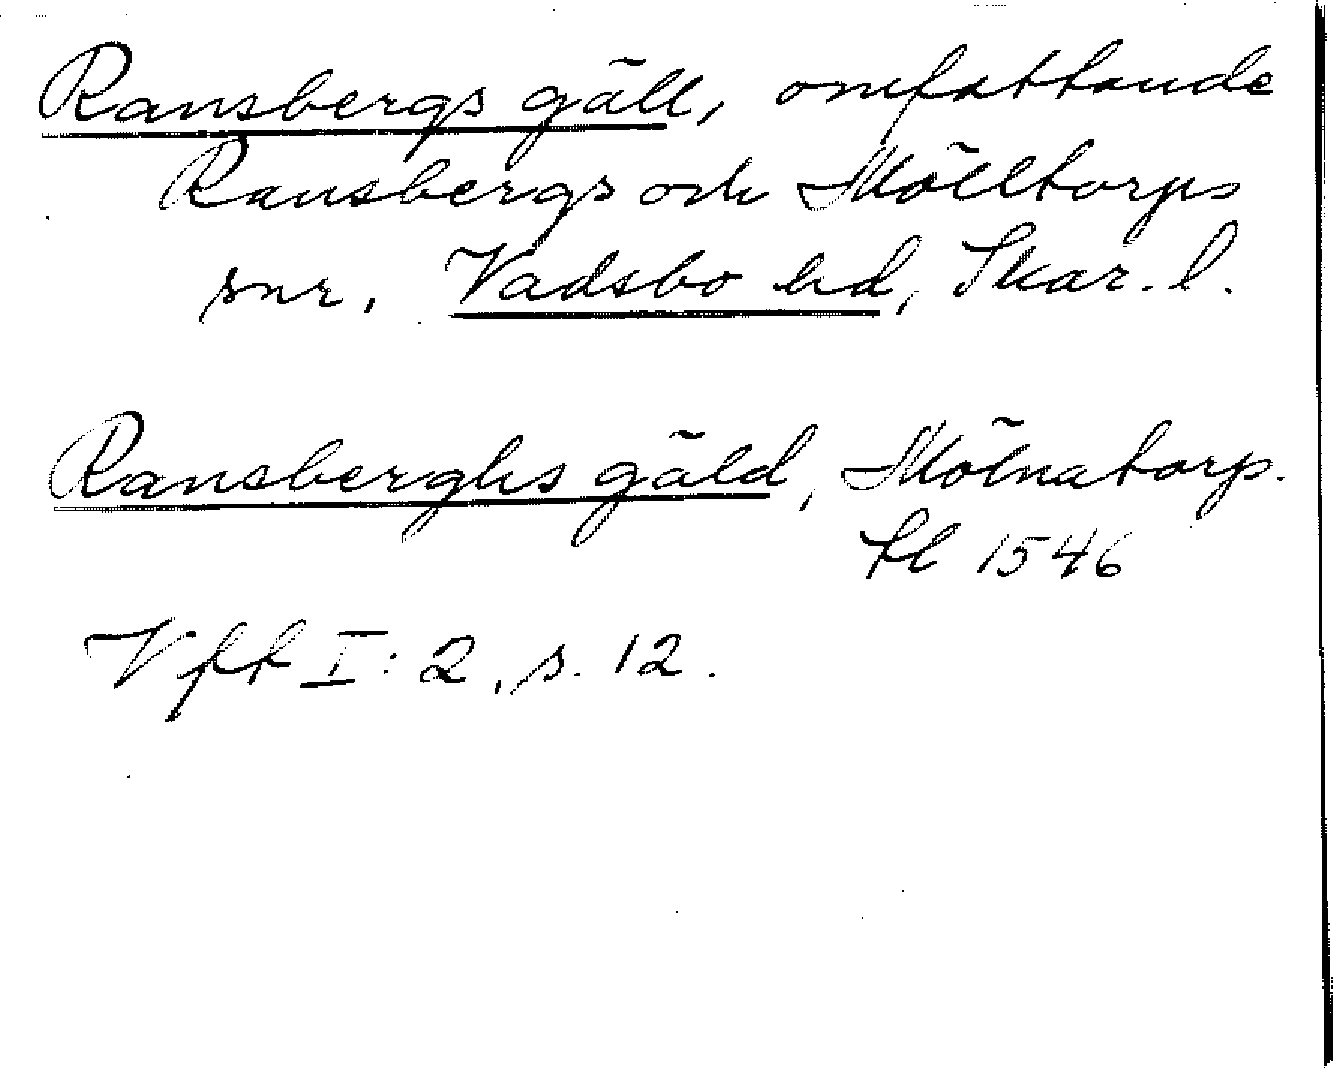 Ransbergs gäll, omfattande
Ransbergs och Mölltorps
snr, Vadsbo hd, Skar. l.
Ransberghs gäld, Mölnatorp.
tl 1546
Vfft I:2, s. 12.